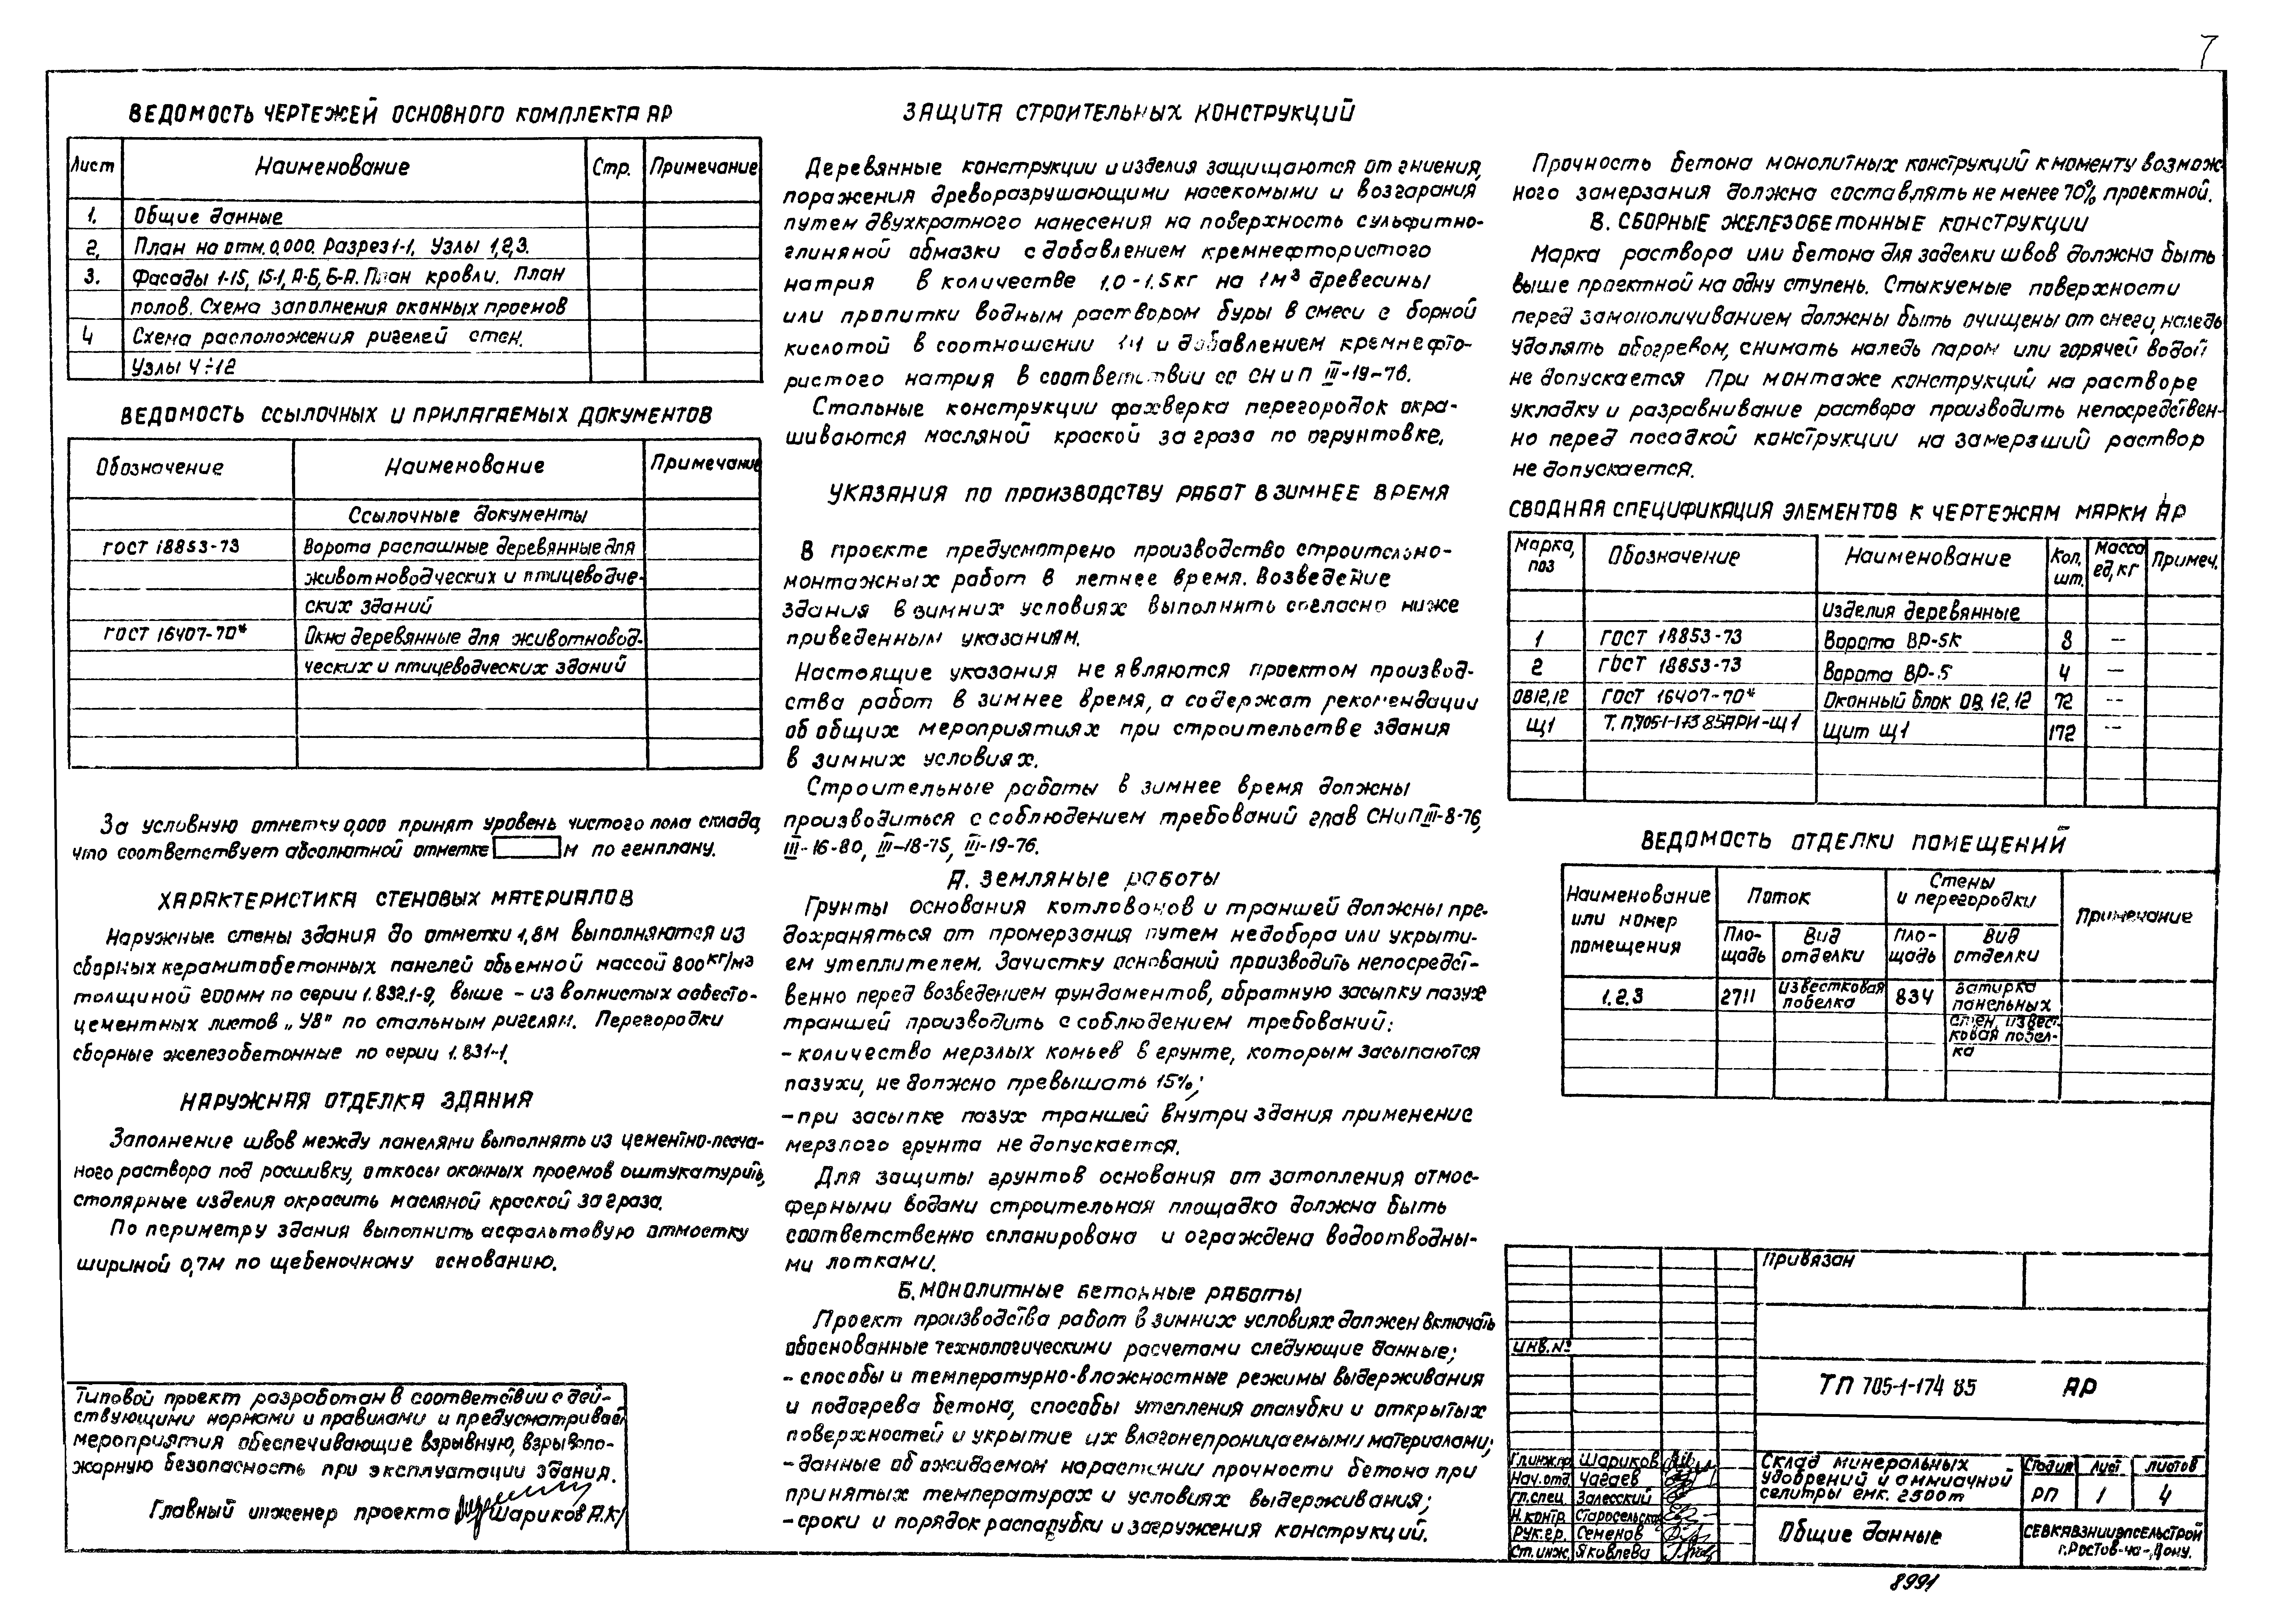 7
ВЕДОМОСТЬ ЧЕРТЕЖЕЙ ОСНОВНОГО КОМПЛЕКТА АР
Лист Наименование Стр. Примечание
1. Общие данные
2. План на отм. 0,000. Разрез 1-1. Узлы 1,2,3.
3. Фасады 1-15, 15-1, А-Б, Б-А. План кровли. План
полов. Схема заполнения оконных проемов
4 Схема расположения ригелей стен.
Узлы 4÷12
ВЕДОМОСТЬ ССЫЛОЧНЫХ И ПРИЛАГАЕМЫХ ДОКУМЕНТОВ
Обозначение Наименование Примечание
Ссылочные документы
ГОСТ 18853-73 Ворота распашные деревянные для
животноводческих и птицеводче-
ских зданий
ГОСТ 16407-70* Окна деревянные для животновод-
ческих и птицеводческих зданий
За условную отметку 0,000 принят уровень чистого пола склада,
что соответствует абсолютной отметке м по генплану.
ХАРАКТЕРИСТИКА СТЕНОВЫХ МАТЕРИАЛОВ
Наружные стены здания до отметки 1,8м выполняются из
сборных керамзитобетонных панелей объемной массой 800 кг/м3
толщиной 200мм по серии 1.832.1-9, выше - из волнистых асбесто-
цементных листов „УВ" по стальным ригелям. Перегородки
сборные железобетонные по серии 1.831-1.
НАРУЖНАЯ ОТДЕЛКА ЗДАНИЯ
Заполнение швов между панелями выполнять из цементно-песча-
ного раствора под расшивку, откосы оконных проемов оштукатурить,
столярные изделия окрасить масляной краской за 2 раза.
По периметру здания выполнить асфальтовую отмостку
шириной 0,7м по щебеночному основанию.
Типовой проект разработан в соответствии с дей-
ствующими нормами и правилами и предусматривает
мероприятия обеспечивающие взрывную, взрывопо-
жарную безопасность при эксплуатации здания.
Главный инженер проекта Шариков А.К.
ЗАЩИТА СТРОИТЕЛЬНЫХ КОНСТРУКЦИЙ
Деревянные конструкции и изделия защищаются от гниения,
поражения древоразрушающими насекомыми и возгарания
путем двухкратного нанесения на поверхность сульфитно-
глиняной обмазки с добавлением кремнефтористого
натрия в количестве 1.0-1.5кг на 1м3 древесины
или пропитки водным раствором буры в смеси с борной
кислотой в соотношении 1:1 и добавлением кремнефто-
ристого натрия в соответствии со СНиП III-19-76.
Стальные конструкции фахверка перегородок окра-
шиваются масляной краской за 2 раза по огрунтовке.
УКАЗАНИЯ ПО ПРОИЗВОДСТВУ РАБОТ В ЗИМНЕЕ ВРЕМЯ
В проекте предусмотрено производство строительно-
монтажных работ в летнее время. Возведение
здания в зимних условиях выполнять согласно ниже
приведенным указаниям.
Настоящие указания не являются проектом производ-
ства работ в зимнее время, а содержат рекомендации
об общих мероприятиях при строительстве здания
в зимних условиях.
Строительные работы в зимнее время должны
производиться с соблюдением требований глав СНиП III-8-76,
III-16-80, III-18-75, III-19-76.
А. ЗЕМЛЯНЫЕ РАБОТЫ
Грунты основания котлованов и траншей должны пре-
дохраняться от промерзания путем недобора или укрыти-
ем утеплителем. Зачистку оснований производить непосредст-
венно перед возведением фундаментов, обратную засыпку пазух
траншей производить с соблюдением требований:
- количество мерзлых комьев в грунте, которым засыпаются
пазухи, не должно превышать 15%;
- при засыпке пазух траншей внутри здания применение
мерзлого грунта не допускается.
Для защиты грунтов основания от затопления атмос-
ферными водами строительная площадка должна быть
соответственно спланирована и ограждена водоотводны-
ми лотками.
Б. МОНОЛИТНЫЕ БЕТОННЫЕ РАБОТЫ
Проект производства работ в зимних условиях должен включать
обоснованные технологическими расчетами следующие данные;
- способы и температурно-влажностные режимы выдерживания
и подогрева бетона, способы утепления опалубки и открытых
поверхностей и укрытие их влагонепроницаемыми материалами;
- данные об ожидаемом нарастании прочности бетона при
принятых температурах и условиях выдерживания;
- сроки и порядок распалубки и загружения конструкций.
Прочность бетона монолитных конструкций к моменту возмож-
ного замерзания должна составлять не менее 70% проектной.
В. СБОРНЫЕ ЖЕЛЕЗОБЕТОННЫЕ КОНСТРУКЦИИ
Марка раствора или бетона для заделки швов должна быть
выше проектной на одну ступень. Стыкуемые поверхности
перед замоноличиванием должны быть очищены от снега, наледь
удалять обогревом, снимать наледь паром или горячей водой
не допускается При монтаже конструкций на растворе
укладку и разравнивание раствора производить непосредствен-
но перед посадкой конструкции на замерзший раствор
не допускается.
СВОДНАЯ СПЕЦИФИКАЦИЯ ЭЛЕМЕНТОВ К ЧЕРТЕЖАМ МАРКИ АР
Марка, поз Обозначение Наименование Кол, шт. Масса ед, кг Примеч.
Изделия деревянные
1 ГОСТ 18853-73 Ворота ВР-5К 8 —
2 ГОСТ 18853-73 Ворота ВР-5 4 —
ОВ12,12 ГОСТ 16407-70* Оконный блок ОВ. 12.12 72 --
Щ1 Щит Щ1 172 --
ВЕДОМОСТЬ ОТДЕЛКИ ПОМЕЩЕНИЙ
Наименование или номер помещения Поток Стены и перегородки Примечание
Пло-щадь Вид отделки Пло-щадь Вид отделки
1.2.3 2711 известковая побелка 834 затирка
панельных
стен, извест-
ковая побел-
ка
Привязан
ИНВ.№
ТП 705-1-174 85 АР
Гл.инж.пр. Шариков
Нач.отд Чагаев
Гл.спец Залесский
Н.контр Старосельская
Рук.гр. Семенов
Ст.инж. Яковлева
Склад минеральных
удобрений и аммиачной
селитры емк. 2500т
Стадия Лист Листов
РП 1 4
Общие данные
СЕВКАВЗНИИЭПСЕЛЬСТРОЙ
г.Ростов-на-Дону.
8991